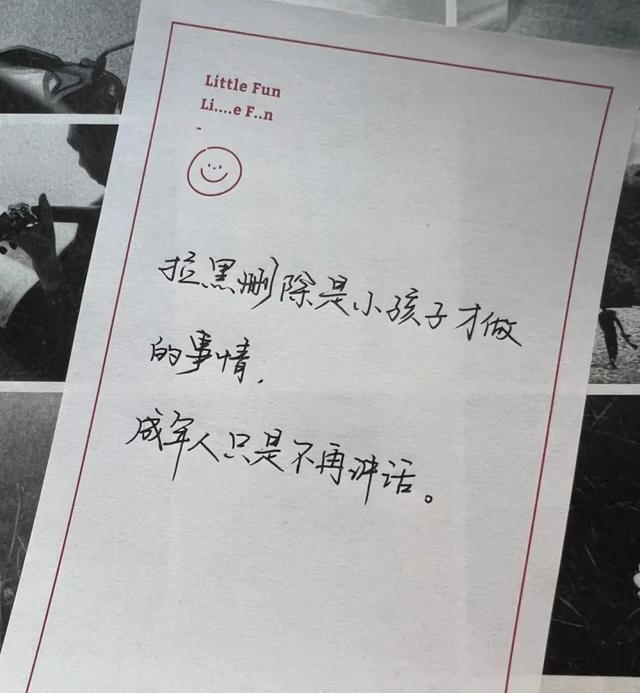 Little Fun
Li....e F..n
-
拉黑删除是小孩子才做
的事情.
成年人只是不再讲话。